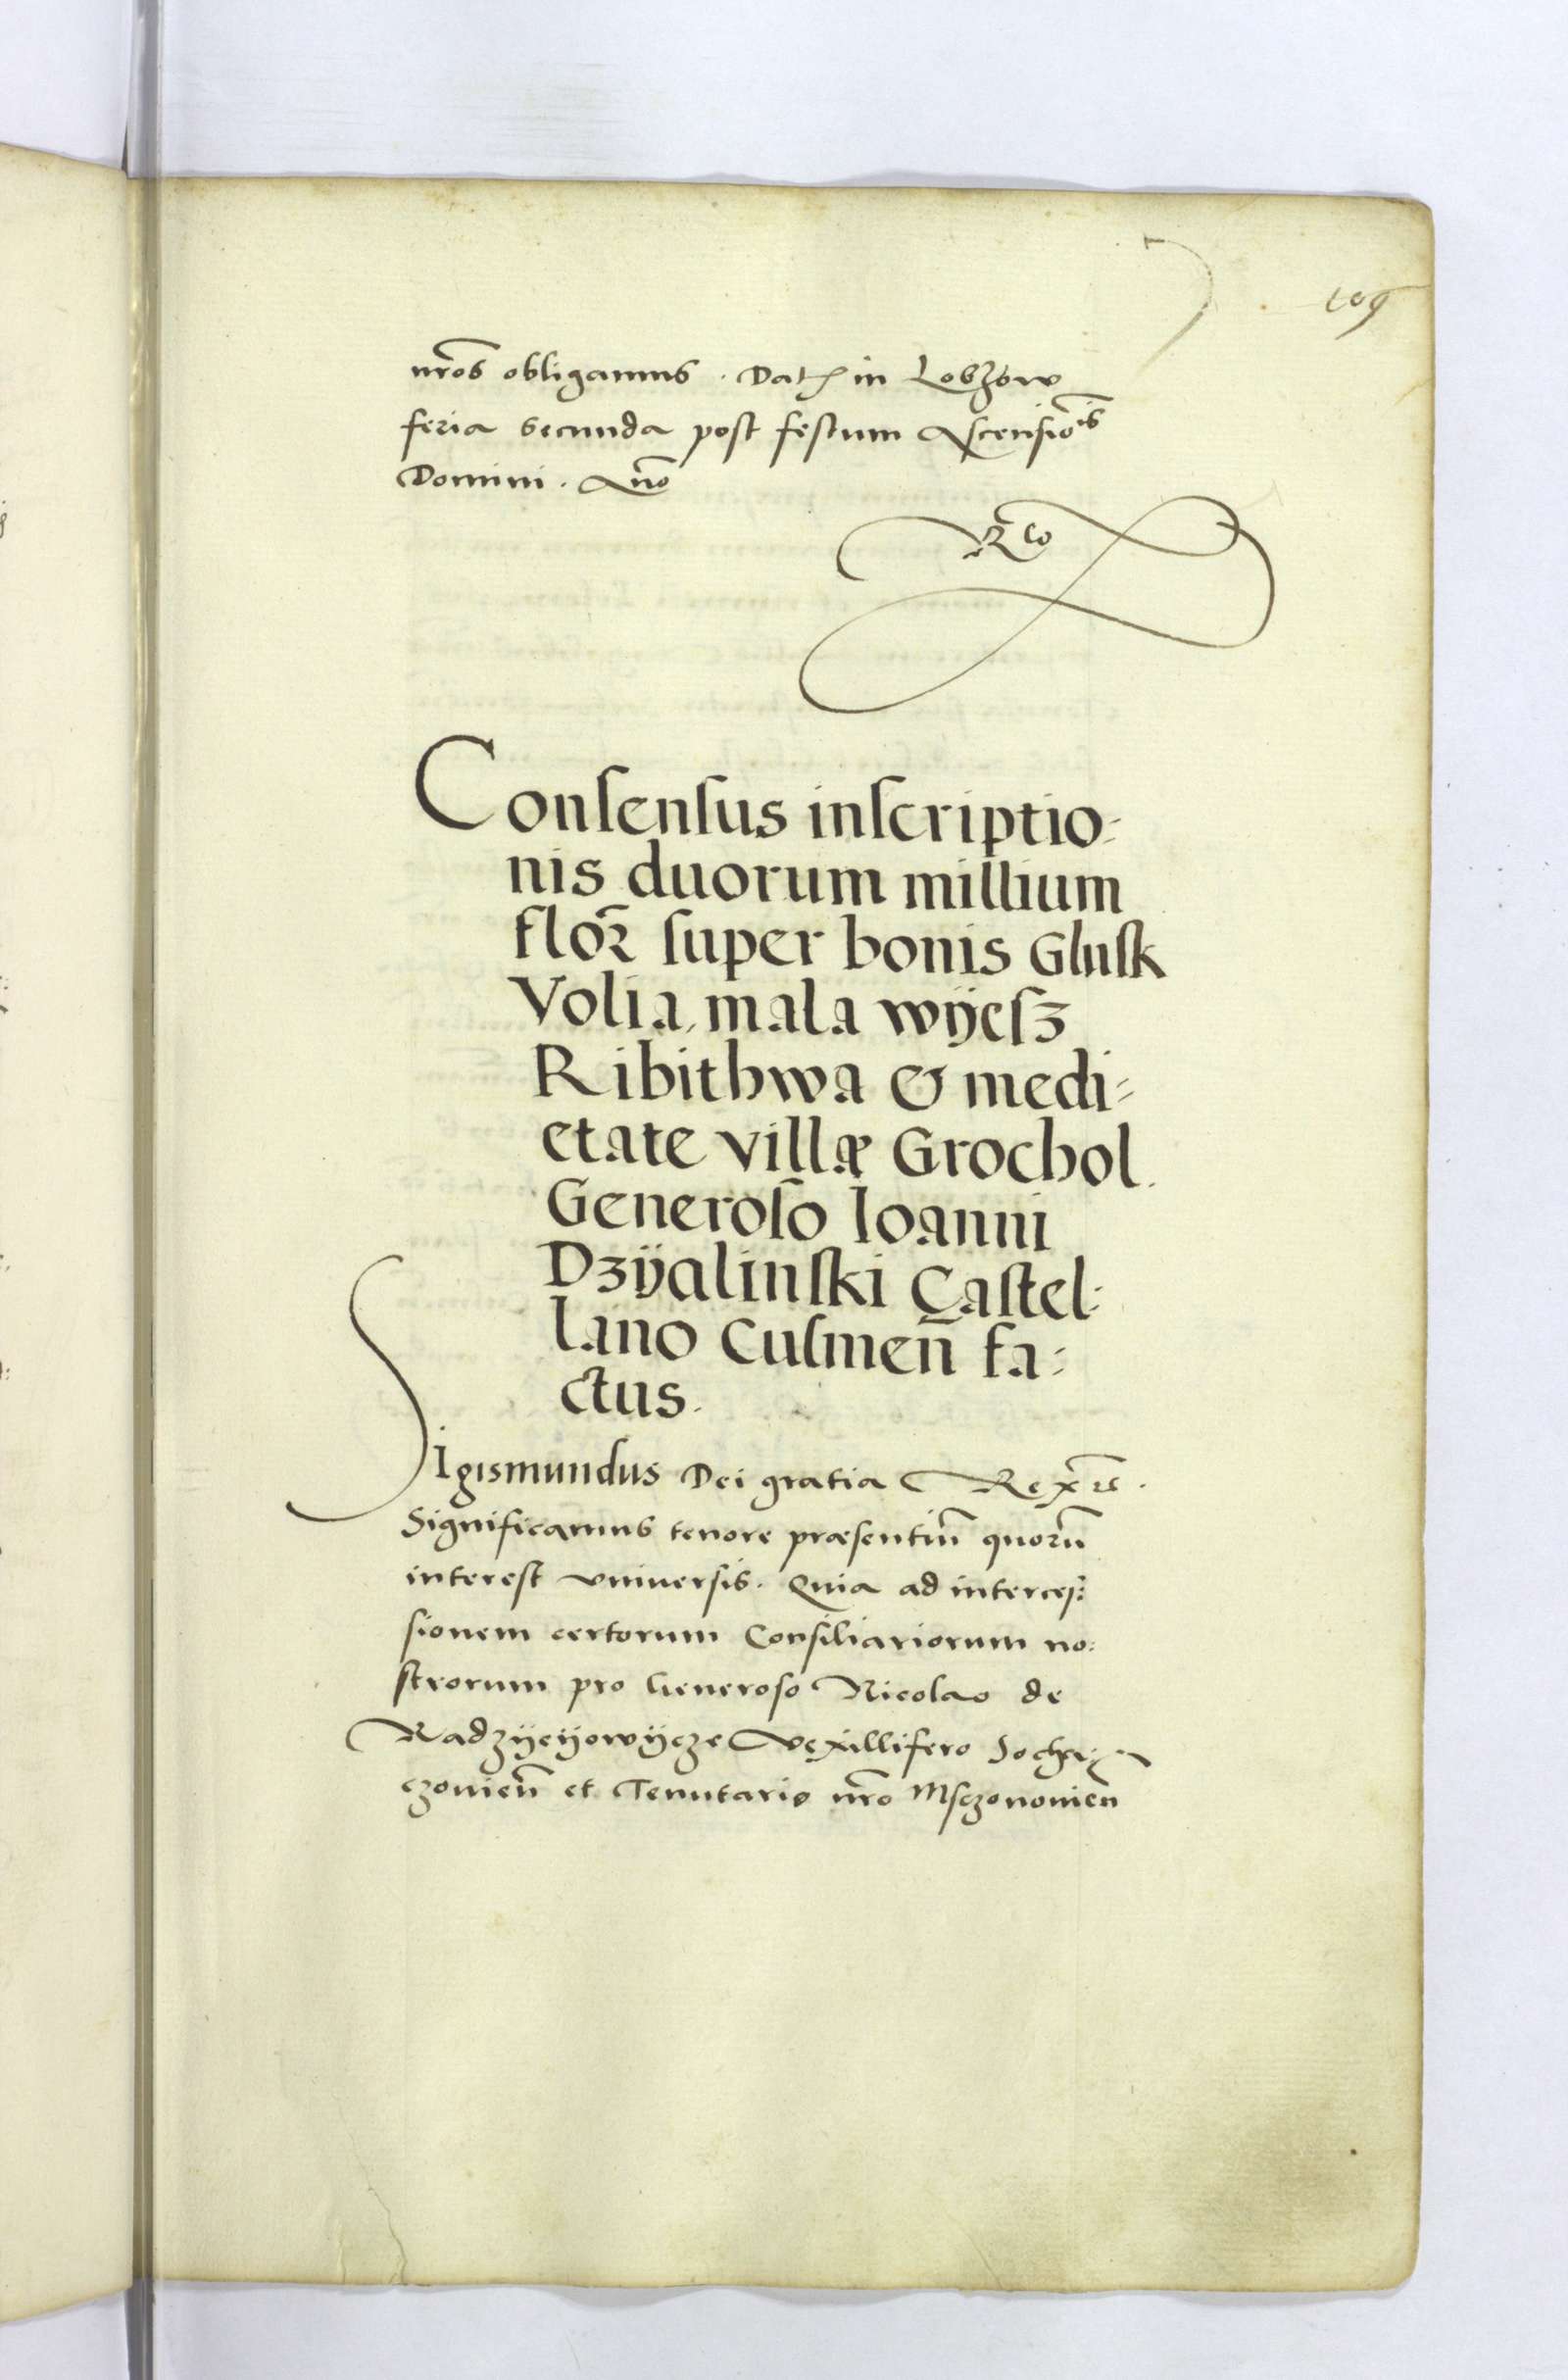 109
nr̃os obligamus. Dat̃ in Lobzow
feria secunda post festum Ascensiõis
Domini. Anõ
Conſenſus inſcriptio⸗
nis duorum millium
flor̃ ſuper bonis Gluſk
Volia, mala wÿeſʒ
Ribithwa & medi⸗
etate villæ Grochol.
Generoſo Ioanni
Dzÿalinſki Caſtel⸗
lano Culmeñ fa⸗
ctus.
Sigismundus Dei gratia Rex rc̃.
Significamus tenore præsentiũ quorũ
interest vniuersis. Quia ad interces⸗
sionem certorum Consiliariorum no⸗
strorum pro Generoso Nicolao de
Radzÿeÿowÿcze Vexillifero Socha⸗
czouieñ et Tenutario nr̃o Msczonouieñ